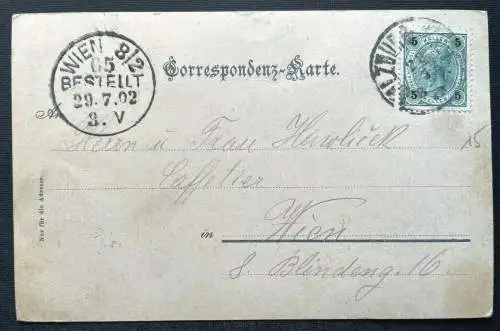 WIEN 8/2
65
BESTELLT
29.7.02
3.V
Correspondenz-Karte.
5 5
5 5
An
Herrn u Frau Hawlicek
Caffetier
in Wien
8. Blindeng. 16.
Nur für die Adresse.
15